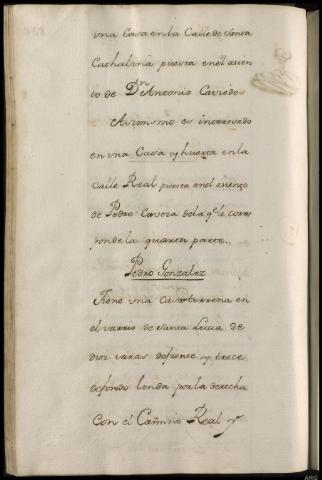 una Casa en la Calle de Santa
Cathalina puesta en el asien
to de Dn Antonio Caviedes
Asimismo es interesado
en una Casa y huerta en la
Calle Real puesta en el asiento
de Pedro Casera de la qe le corres
ponde la quarta parte
Pedro Gonzalez
Tiene una Casa terrena en
el varrio de Santa Lucia de
diei varas de frente y trece
de fondo linda por la derecha
con el Camino Real y
ARC